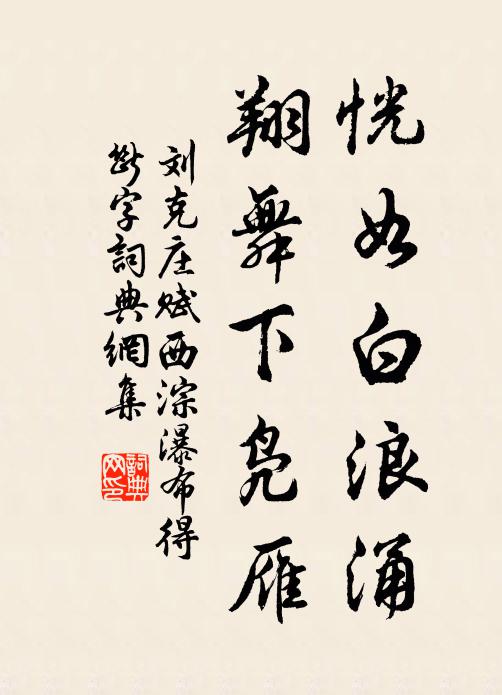 恍如白浪涌
翔舞下凫雁
刘克庄赋西淙瀑布得
断字詞典網集
詞典网印